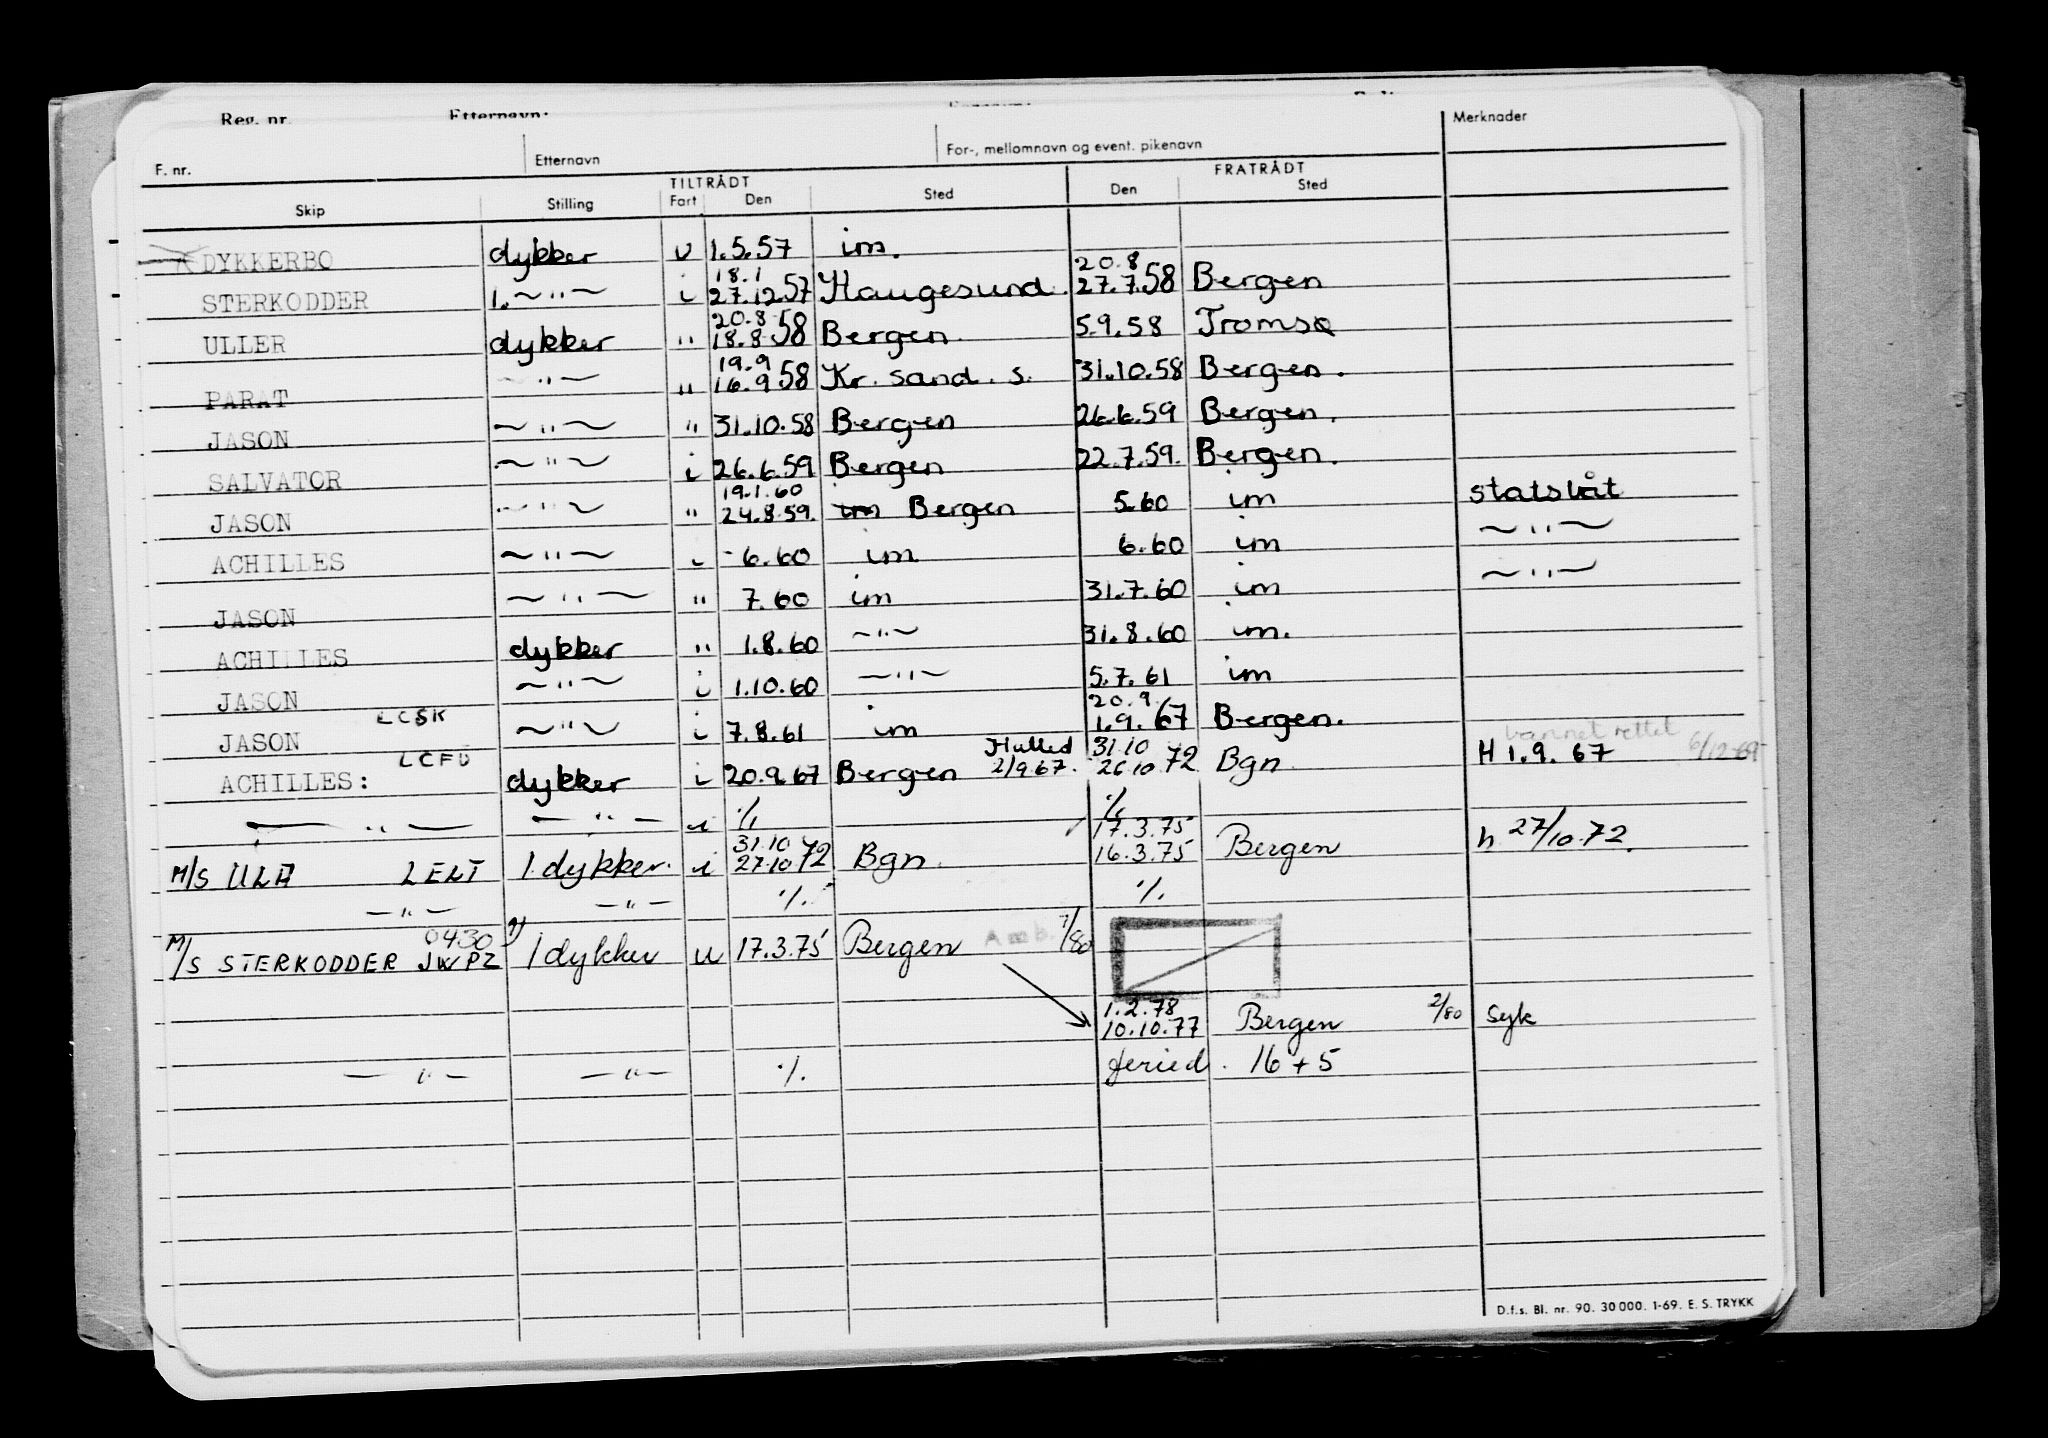 Reg. nr. Etternavn:
F. nr. Etternavn For-, mellomnavn og event. pikenavn Merknader
TILTRÅDT FRATRÅDT
Skip Stilling Fart Den Sted Den Sted
DYKKERBO dykker u 1.5.57 im.
18.1 20.8
STERKODDER 1. ~"~ i 27.12.57 Haugesund. 27.7.58 Bergen
20.8
ULLER dykker " 18.8 58 Bergen. 5.9.58 Tromsø
19.9
PARAT ~"~ " 16.9 58 Kr. sand. s. 31.10.58 Bergen.
JASON ~"~ " 31.10.58 Bergen 26.6.59 Bergen.
SALVATOR ~"~ i 26.6.59 Bergen 22.7.59. Bergen.
19.1.60
JASON ~"~ " 24.8.59. im Bergen 5.60 im statsbåt
ACHILLES ~"~ i -6.60 im 6.60 im ~"~
JASON ~"~ " 7.60 im 31.7.60 im ~"~
ACHILLES dykker " 1.8.60 ~"~ 31.8.60 im.
JASON ~"~ i 1.10.60 ~"~ 5.7.61 im
LCSK 20.9
JASON ~"~ i 7.8.61 im 1.9.67 Bergen.
LCFD Hulled 31.10
ACHILLES: dykker i 20.9.67 Bergen 2/9 67. 26.10 72 Bgn H 1.9.67 6/12-69
— " — — " — i ·/. ·/.
31.10 17.3.75
M/S ULA LELT 1. dykker. i 27.10 72 Bgn. 16.3.75 Bergen h 27/10.72.
— " — — " — ·/. ·/.
0430
M/S STERKODDER JWPZ 1 dykker u 17.3.75 Bergen Amb. 7/80
1.2.78
10.10.77 Bergen 2/80 syk
— " — — " — ·/. feried. 16 + 5
D.f.s. Bl. nr. 90. 30 000. 1-69. E. S. TRYKK